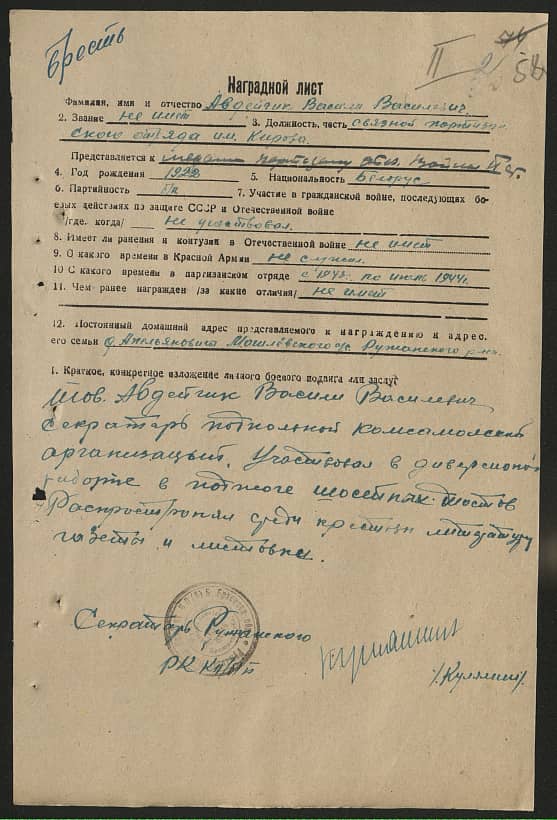 Брестъ
II
58
Наградной лист
Фамилия, имя и отчество Авдейчик Васили Василевич
2. Звание не имет 3. Должность, часть связной партизан-
ского отряда им. Кирова.
Представляется к медали партизану отеч. войны II ст.
4. Год рождения 1922 5. Национальность белорус
6. Партийность б/п 7. Участие в гражданской войне, последующих бо-
евых действиях по защите СССР и Отечественной войне
/где, когда/ не участвовал.
8. Имеет ли ранения и контузии в Отечественной войне не имет
9. С какого времени в Красной Армии не служил.
10 С какого времени в партизанском отряде с 1943г. по июль 1944г.
11. Чем ранее награжден /за какие отличия/ не имет
12. Постоянный домашний адрес представляемого к награждению и адрес
его семьи Ружанского р-на
1. Краткое, конкретное изложение личного боевого подвига или заслуг
Тов. Авдейчик Васили Василевич
Секретарь подпольной комсамолской
организацыи. Участвовал в диверсионой
работе в поджоге шосейных мостов
Распространял среди крестян литературу
газеты и листовки.
Секретарь Ружанского
РК КП/б/Б